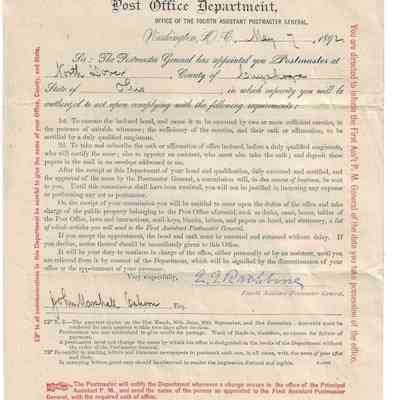 Post Office Department,
OFFICE OF THE FOURTH ASSISTANT POSTMASTER GENERAL,
Washington, D. C., May 7, 1892
Sir: The Postmaster General has appointed you Postmaster at
North Dover, County of Cuyahoga
State of Ohio, in which capacity you will be
authorized to act upon complying with the following requirements:
1st. To execute the inclosed bond, and cause it to be executed by two or more sufficient sureties, in
the presence of suitable witnesses; the sufficiency of the sureties, and their oath or affirmation, to be
certified by a duly qualified magistrate.
2d. To take and subscribe the oath or affirmation of office inclosed, before a duly qualified magistrate,
who will certify the same;
papers in the mail in an envelope addressed to me.
After the receipt at this Department of your bond and qualification, duly executed and certified, and
the approval of the same by the Postmaster General, a commission will, in due course of business, be sent
to you. Until this commission shall have been received, you will not be justified in incurring any expense
or performing any act as postmaster.
On the receipt of your commission you will be entitled to enter upon the duties of the office and take
charge of the public property belonging to the Post Office aforesaid, such as desks, cases, boxes, tables of
the Post Office, laws and instructions, mail keys, blanks, letters, and papers on hand, and stationery, a list
of which articles you will send to the First Assistant Postmaster General.
If you accept the appointment, the bond and oath must be executed and returned without delay. If
you decline, notice thereof should be immediately given to this Office.
It will be your duty to continue in charge of the office, either personally or by an assistant, until you
are relieved from it by consent of the Department, which will be signified by the discontinuance of your office
or the appointment of your successor.
Very respectfully,
Fourth Assistant Postmaster General.
John Marshall Esq.
The quarters expire on the 31st March, 30th June, 30th September, and 31st December. Accounts must be
rendered for each quarter within two days after its close.
Postmasters are not undertake to give credit for postage. Want of funds is, therefore, no excuse for failure of
payment.
A postmaster must not change the name by which his office is designated on the books of the Department without
the order of the Postmaster General.
The Postmaster will notify the Department whenever a change occurs in the office of the Principal
Assistant P. M., and send the name of the person so appointed to the First Assistant Postmaster General,
with the required oath of office.
You are directed to inform the First Ass't P. M. General of the date you take possession of the office.
In all communications to this Department be careful to give the name of your Office, County, and State.